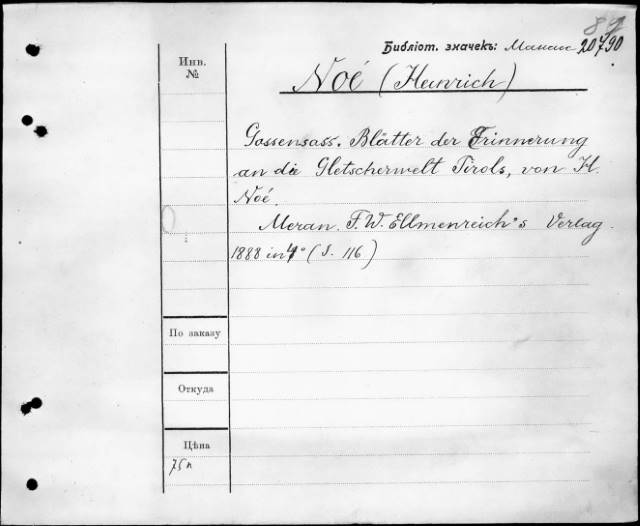 Библіот. значекъ: 20790
Инв.
№
Noé (Heinrich)
Gossensass. Blätter der Erinnerung
an die Gletscherwelt Tirols, von H.
Noé.
Meran. F. W. Ellmenreich's Verlag.
1888 in 4° (S. 116)
По заказу
Откуда
Цѣна
75 к